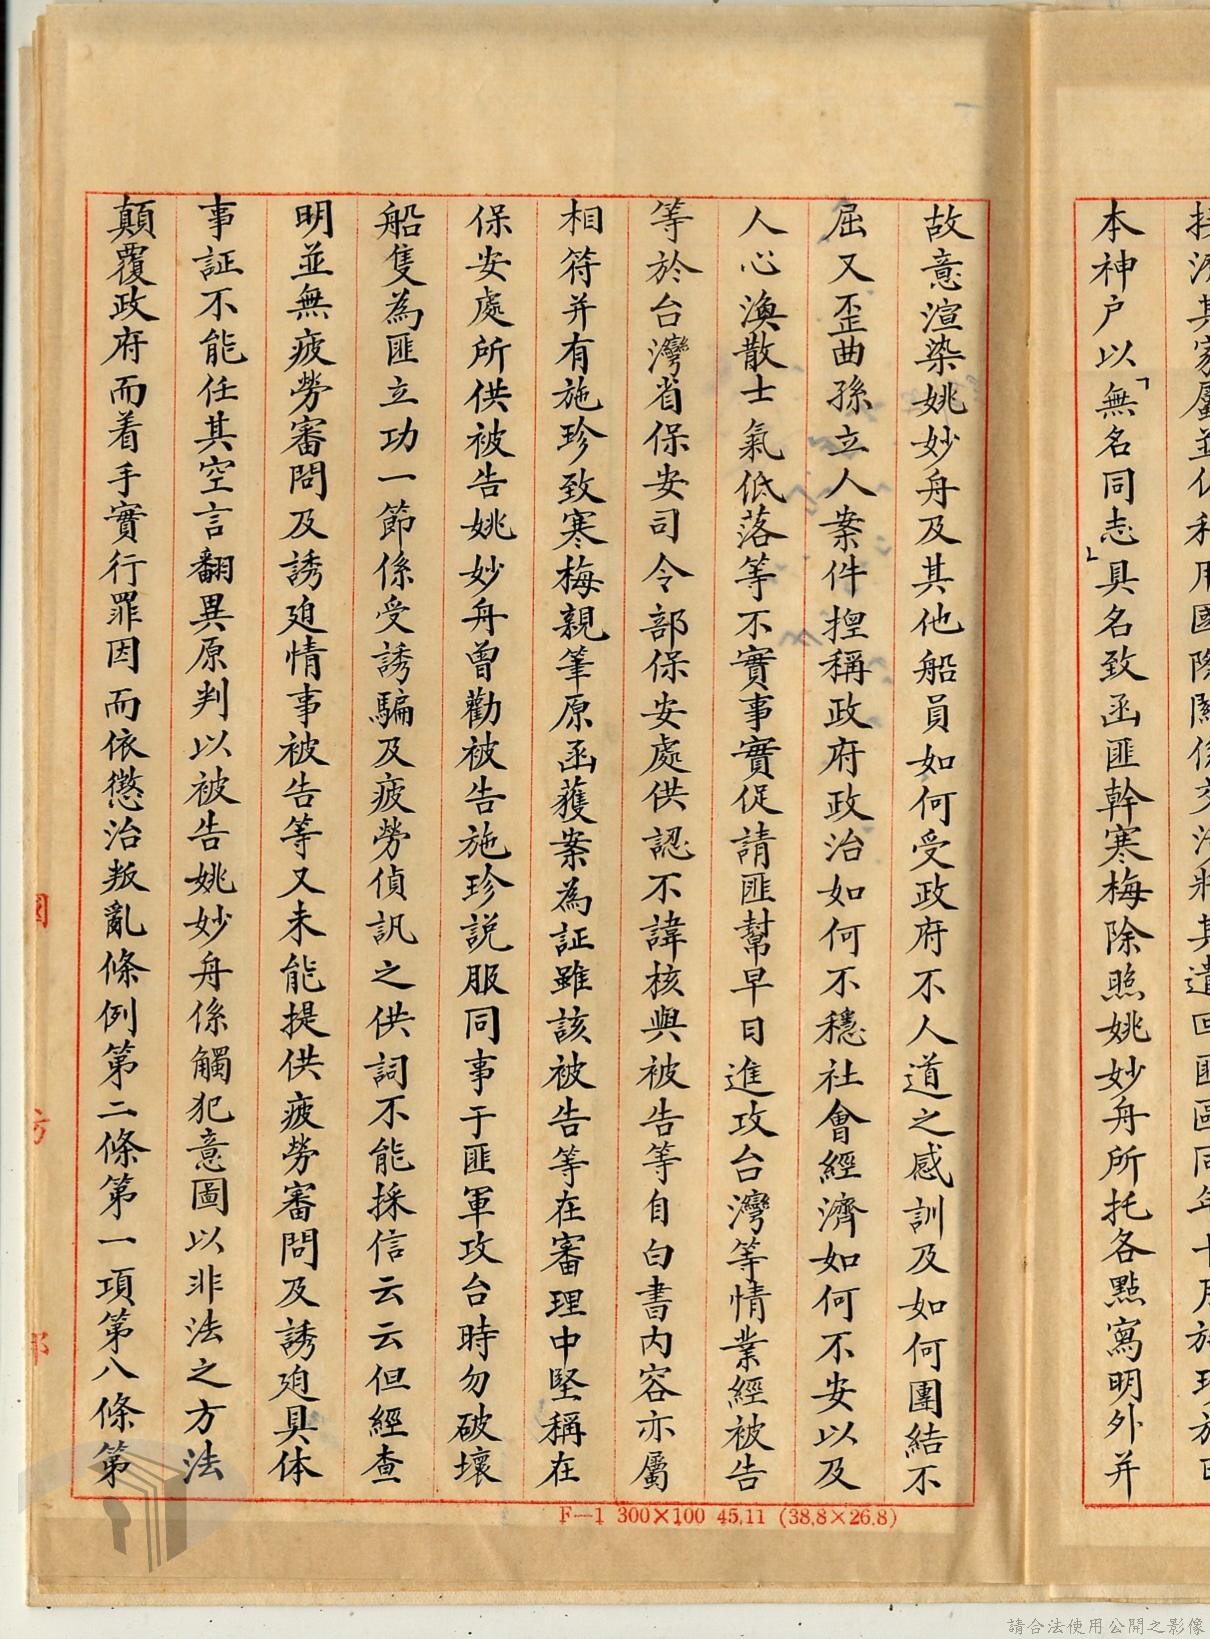 本神户以「無名同志」具名致函匪幹寒梅除照姚妙舟所托各點寫明外并
故意渲染姚妙舟及其他船員如何受政府不人道之感訓及如何團結不
屈又歪曲孫立人案件揑稱政府政治如何不穩社會經濟如何不安以及
人心渙散士氣低落等不實事實促請匪幫早日進攻台灣等情業經被告
等於台灣省保安司令部保安處供認不諱核與被告等自白書內容亦屬
相符并有施珍致寒梅親筆原函獲案為証雖該被告等在審理中堅稱在
保安處所供被告姚妙舟曾勸被告施珍説服同事于匪軍攻台時勿破壞
船隻為匪立功一節係受誘騙及疲勞偵訊之供詞不能採信云云但經查
明並無疲勞審問及誘廹情事被告等又未能提供疲勞審問及誘廹具体
事証不能任其空言翻異原判以被告姚妙舟係觸犯意圖以非法之方法
顛覆政府而着手實行罪因而依懲治叛亂條例第二條第一項第八條第
F—1 300×100 45.11 (38.8×26.8)
國防部
請合法使用公開之影像